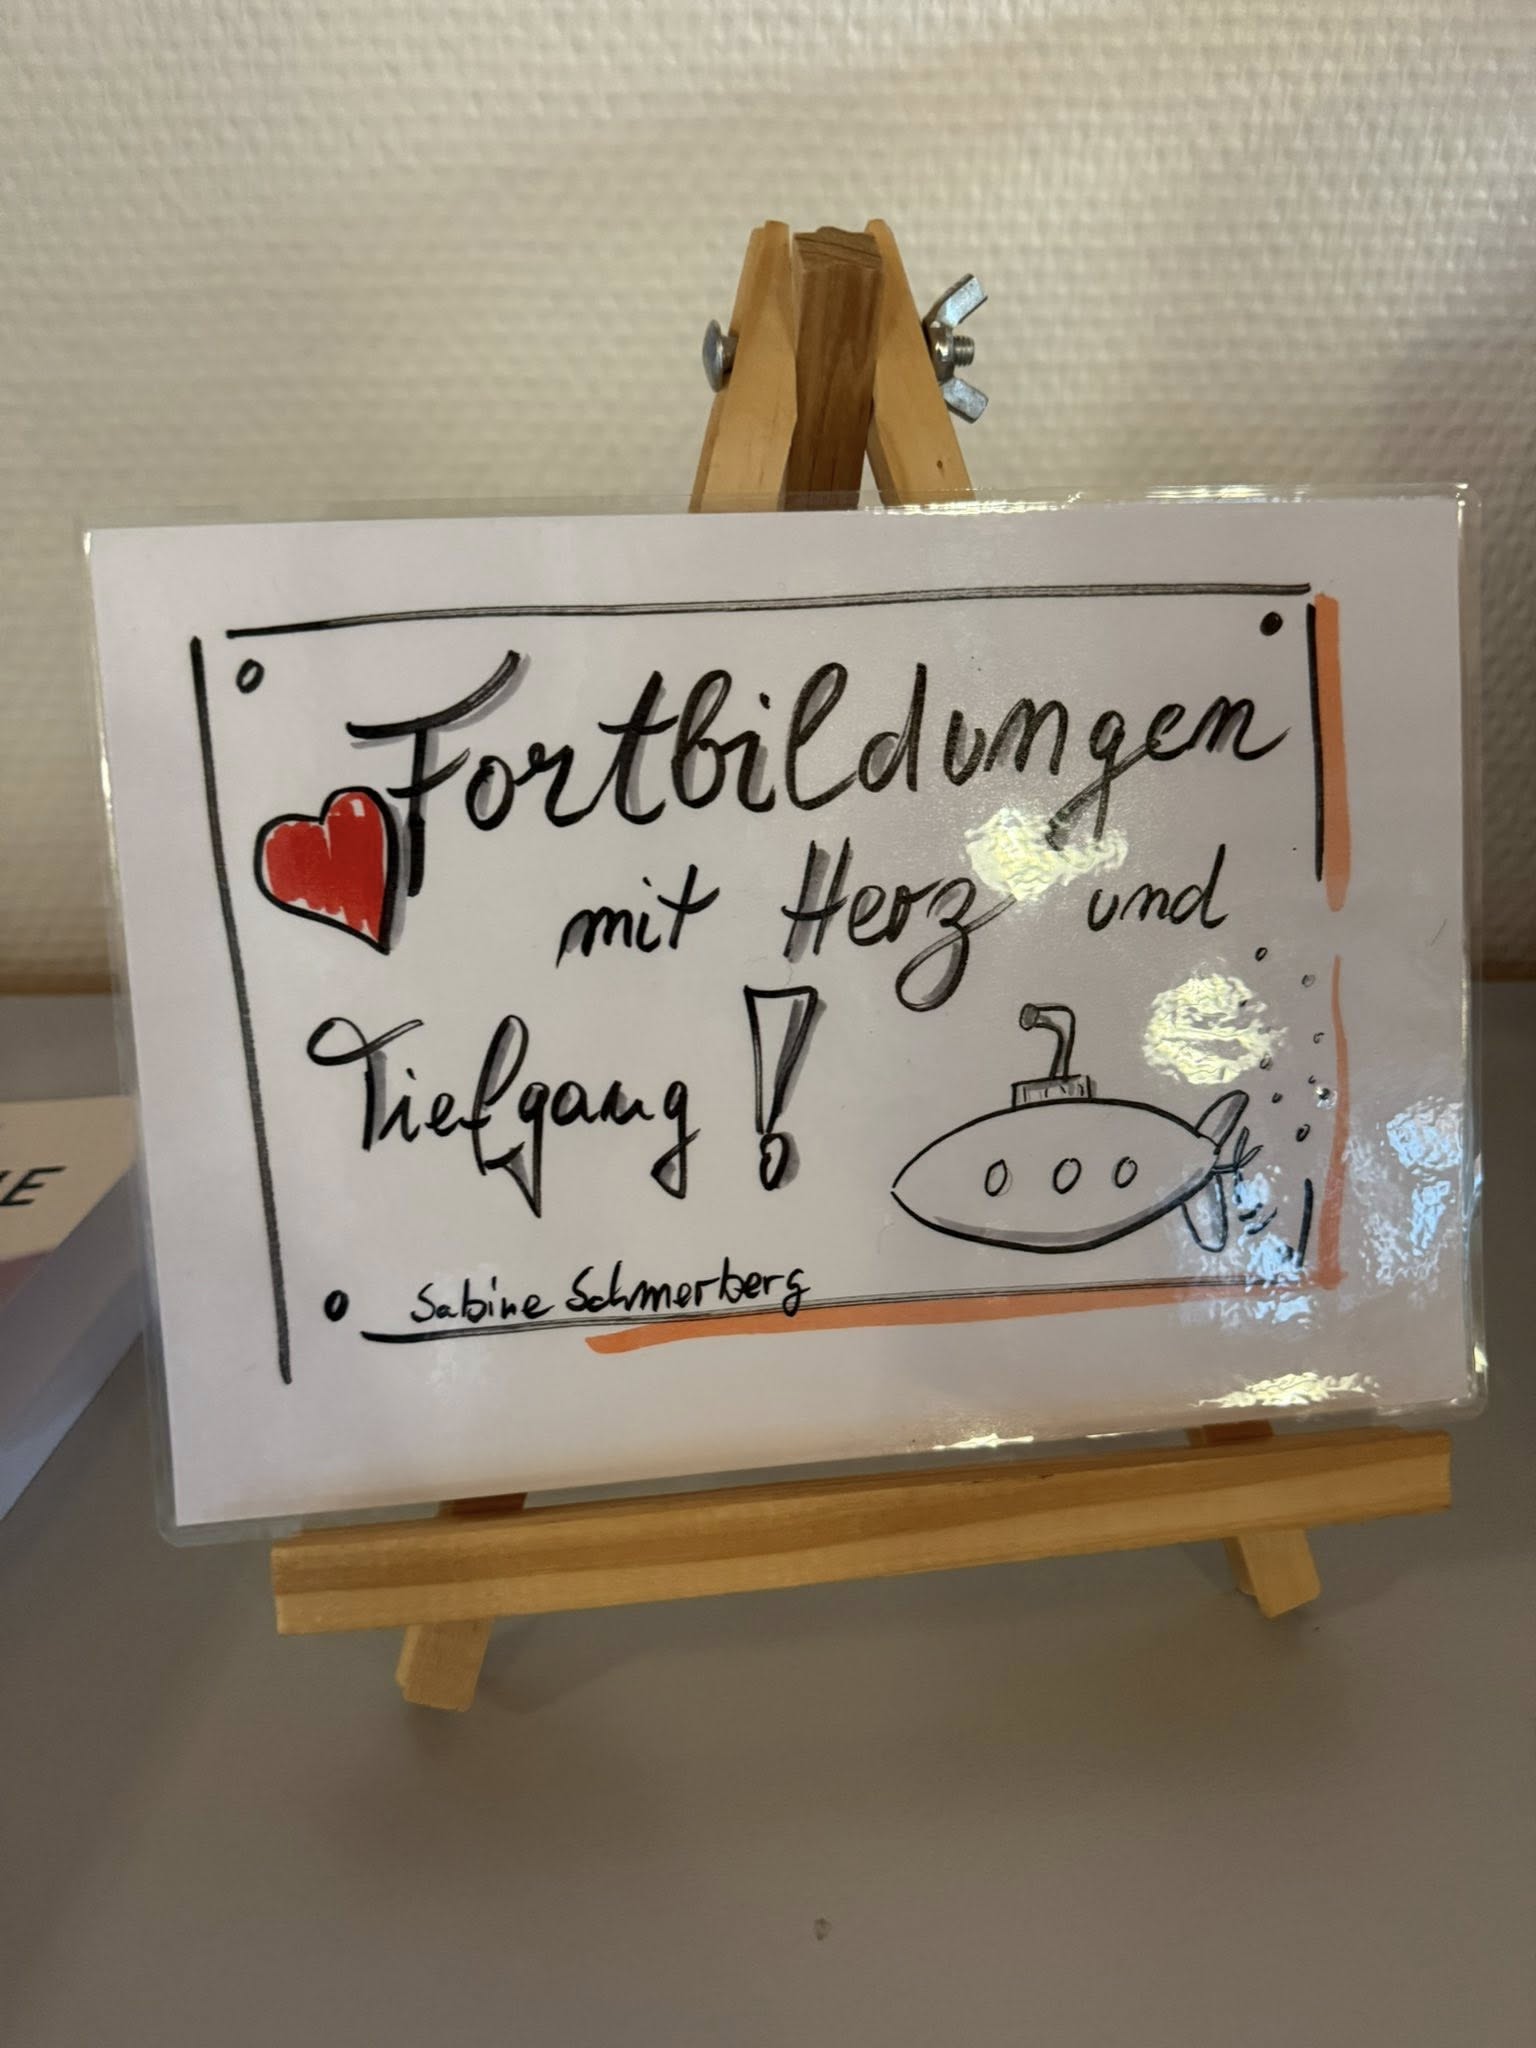 Fortbildungen
mit Herz und
Tiefgang!
Sabine Schmerberg